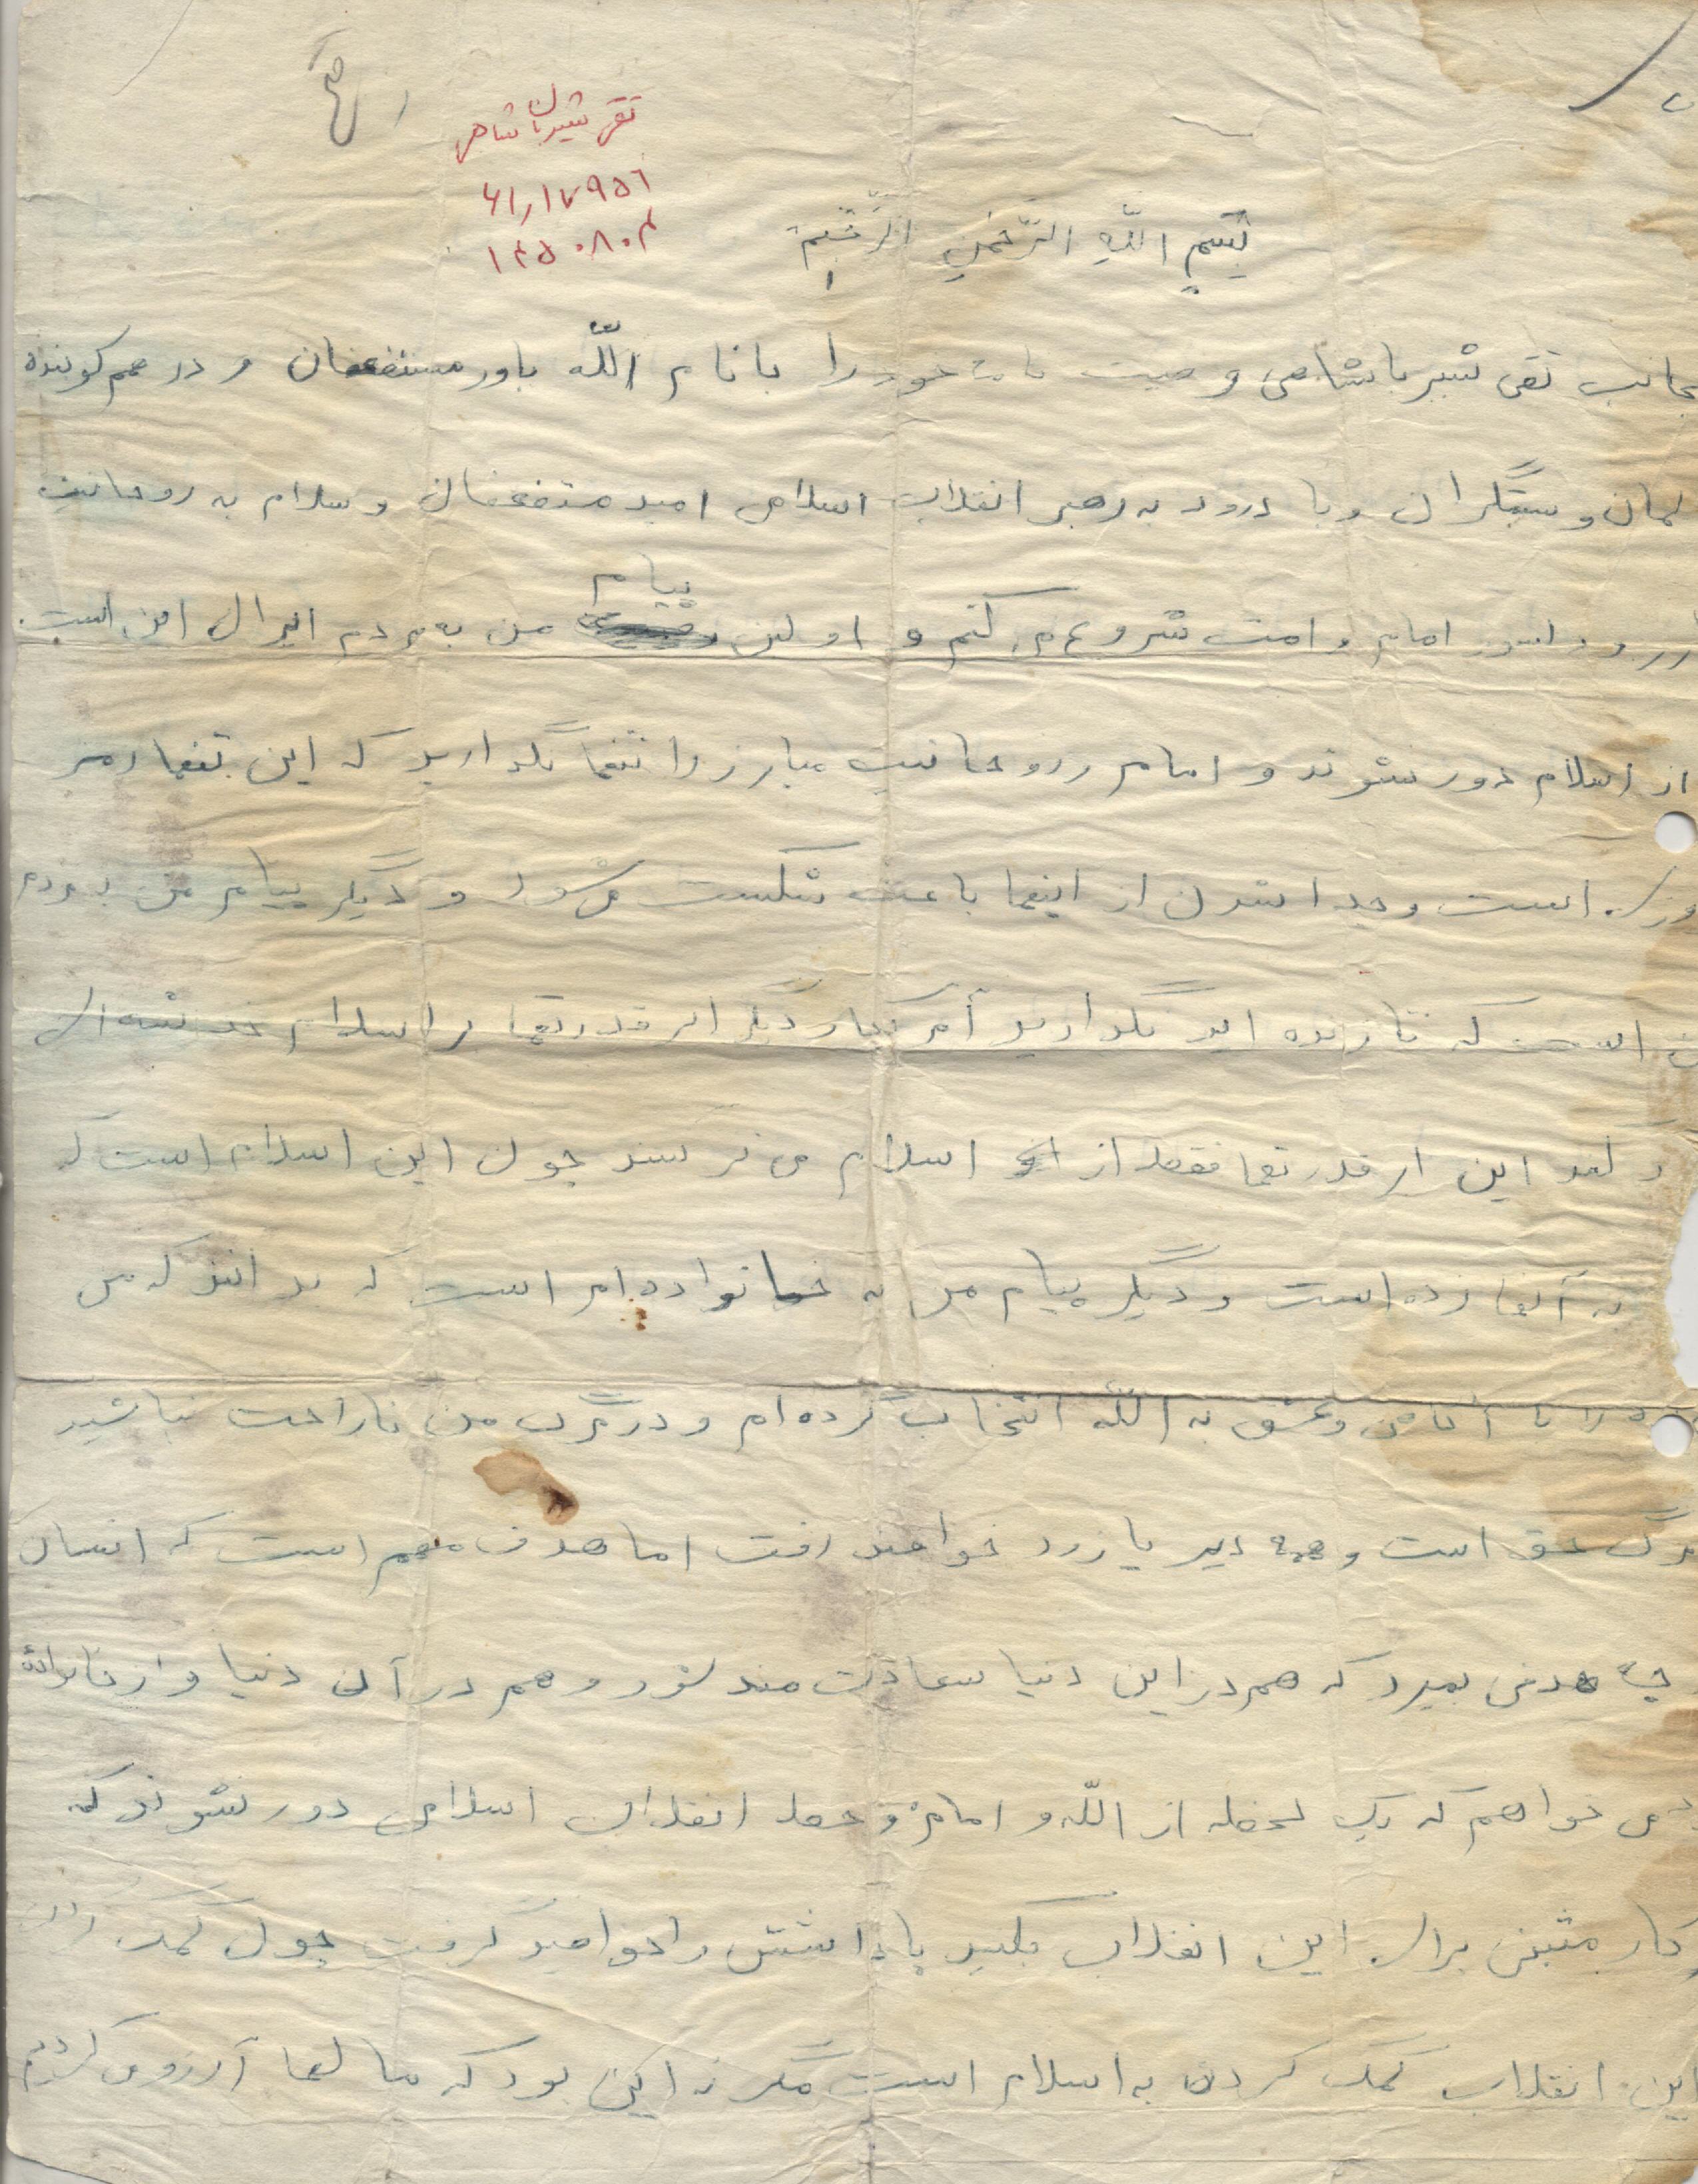 تقی شیرباشاهی
۶۱٫۱۷۹۵۶
م ۱۴۵۰۸۰
بِسْمِ اللّهِ الرَّحْمنِ الرَّحیمْ
تقی شیرباشاهی وصیت نامه خود را با نام اللّه یاور مستضعفان و در هم کوبنده
و ستمگران و با درود به رهبر انقلاب اسلامی امید مستضعفان و سلام به روحانیت
امام و امت شروع می کنم و اولین پیام من به مردم ایران این است.
از اسلام دور نشوند و امام و روحانیت مبارز را تنها نگذارید که این تنها رمز
است و جدا شدن از اینها باعث شکست می شود و دیگر پیام من به مردم
است که تا زنده اید نگذارید آمریکا و دیگر ابرقدرتها بر اسلام خدشه ای
این ابرقدرتها فقط از اسلام می ترسند چون این اسلام است که
به آنها زده است و دیگر پیام من به خانواده ام است که بدانند که من
را با آگاهی و عشق به اللّه انتخاب کرده ام و در مرگ من ناراحت نباشید
مرگ حق است و همه دیر یا زود خواهند رفت اما هدف مهم است که انسان
چه هدفی بمیرد که هم در این دنیا سعادت مند شود و هم در آن دنیا و از خانواده
می خواهم که یک لحظه از اللّه و امام و خط انقلاب اسلامی دور نشوند که
کار مثبتی برای این انقلاب بکنید پاداشش را خواهید گرفت چون کمک
این انقلاب کمک کردن به اسلام است مگر نه این بود که سالها آرزو می کردیم